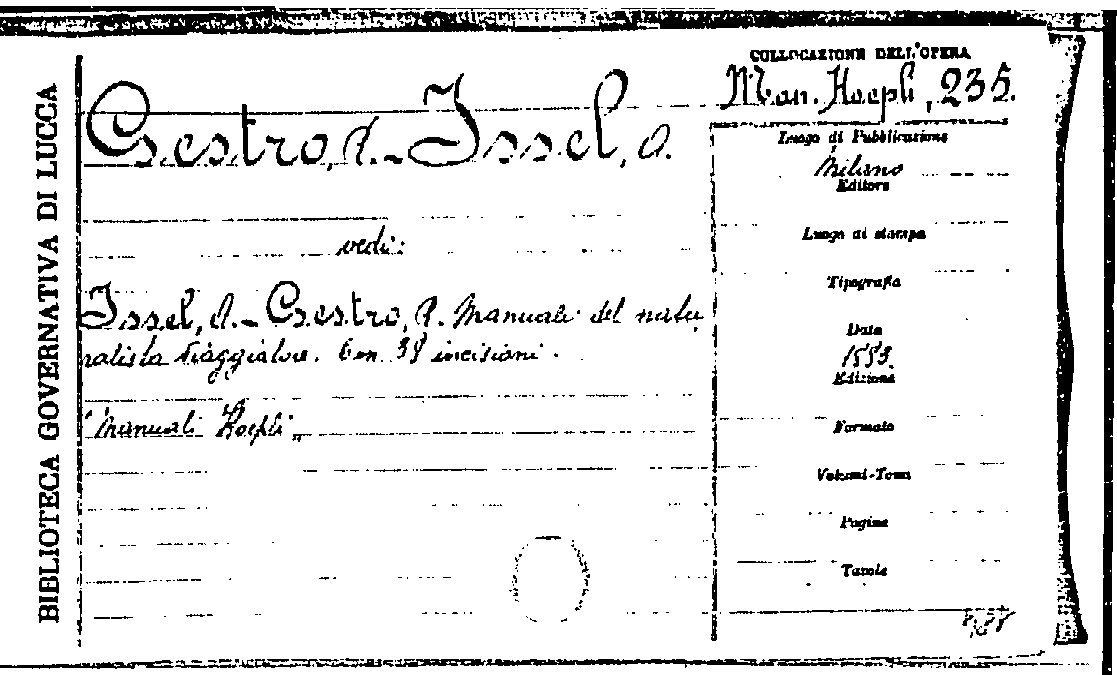 BIBLIOTECA GOVERNATIVA DI LUCCA
COLLOCAZIONE DELL'OPERA
Man. Hoepli, 235.
Gestro, R. - Issel, A.
Luogo di Pubblicazione
Milano
Editore
Luogo di stampa
vedi:
Tipografia
Issel, A. - Gestro, R. Manuale del natu-
ralista viaggiatore. Con 38 incisioni.
Data
1883.
Edizione
"Manuali Hoepli"
Formato
Volumi-Tomi
Pagine
Tavole